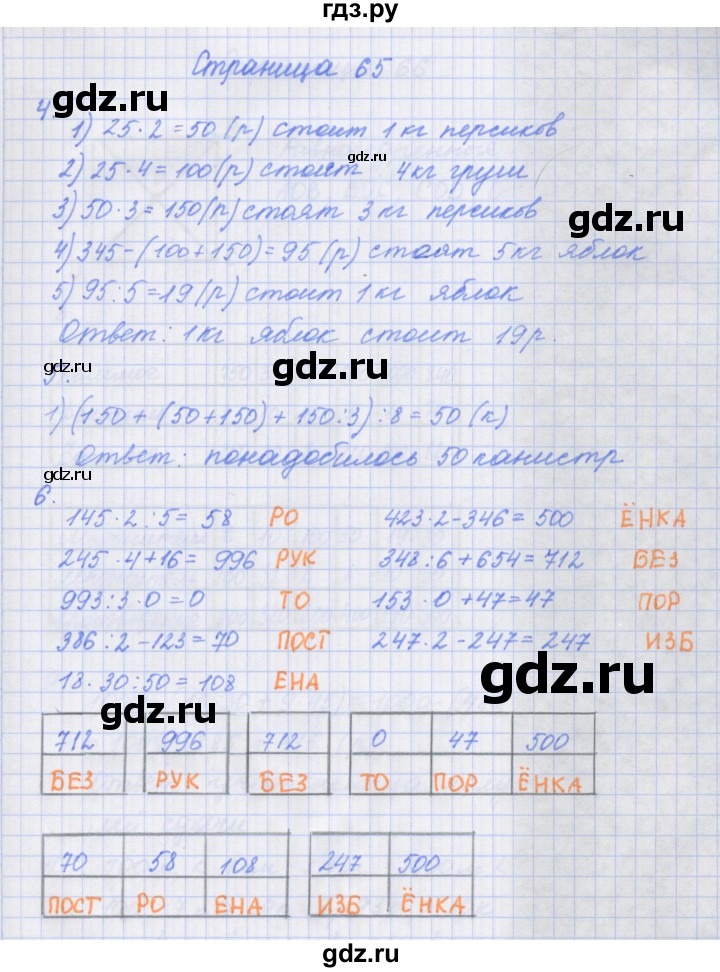 гдз.ру
Страница 65
gdz.ru
4.
1) 25·2=50 (р) стоит 1 кг персиков
gdz.ru
2) 25·4=100(р) стоит 4кг груш
3) 50·3=150(р) стоят 3 кг персиков
4) 345-(100+150)=95 (р) стоят 5кг яблок
5) 95:5=19 (р) стоит 1 кг яблок
Ответ: 1кг яблок стоит 19р.
gdz.ru
5.
1) (150+(50+150)+150:3):8=50 (к)
Ответ: понадобилось 50 канистр
gdz.ru
6.
145·2:5=58 РО 423·2-346=500 ЁНКА
245·4+16=996 РУК 348:6+654=712 БЕЗ
993:3·0=0 ТО 153·0+47=47 ПОР
386:2-123=70 ПОСТ 247·2-247=247 ИЗБ
18·30:50=108 ЕНА
gdz.ru
712 996 712 0 47 500
БЕЗ РУК БЕЗ ТО ПОР ЁНКА
gdz.ru
70 58 108 247 500
ПОСТ РО ЕНА ИЗБ ЁНКА
gdz.ru